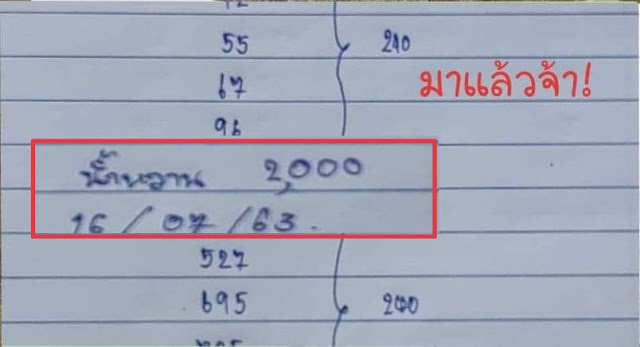 55 210
67
มาแล้วจ้า!
96
น้ำหวาน 2,000
16 / 07 / 63.
527
695 200